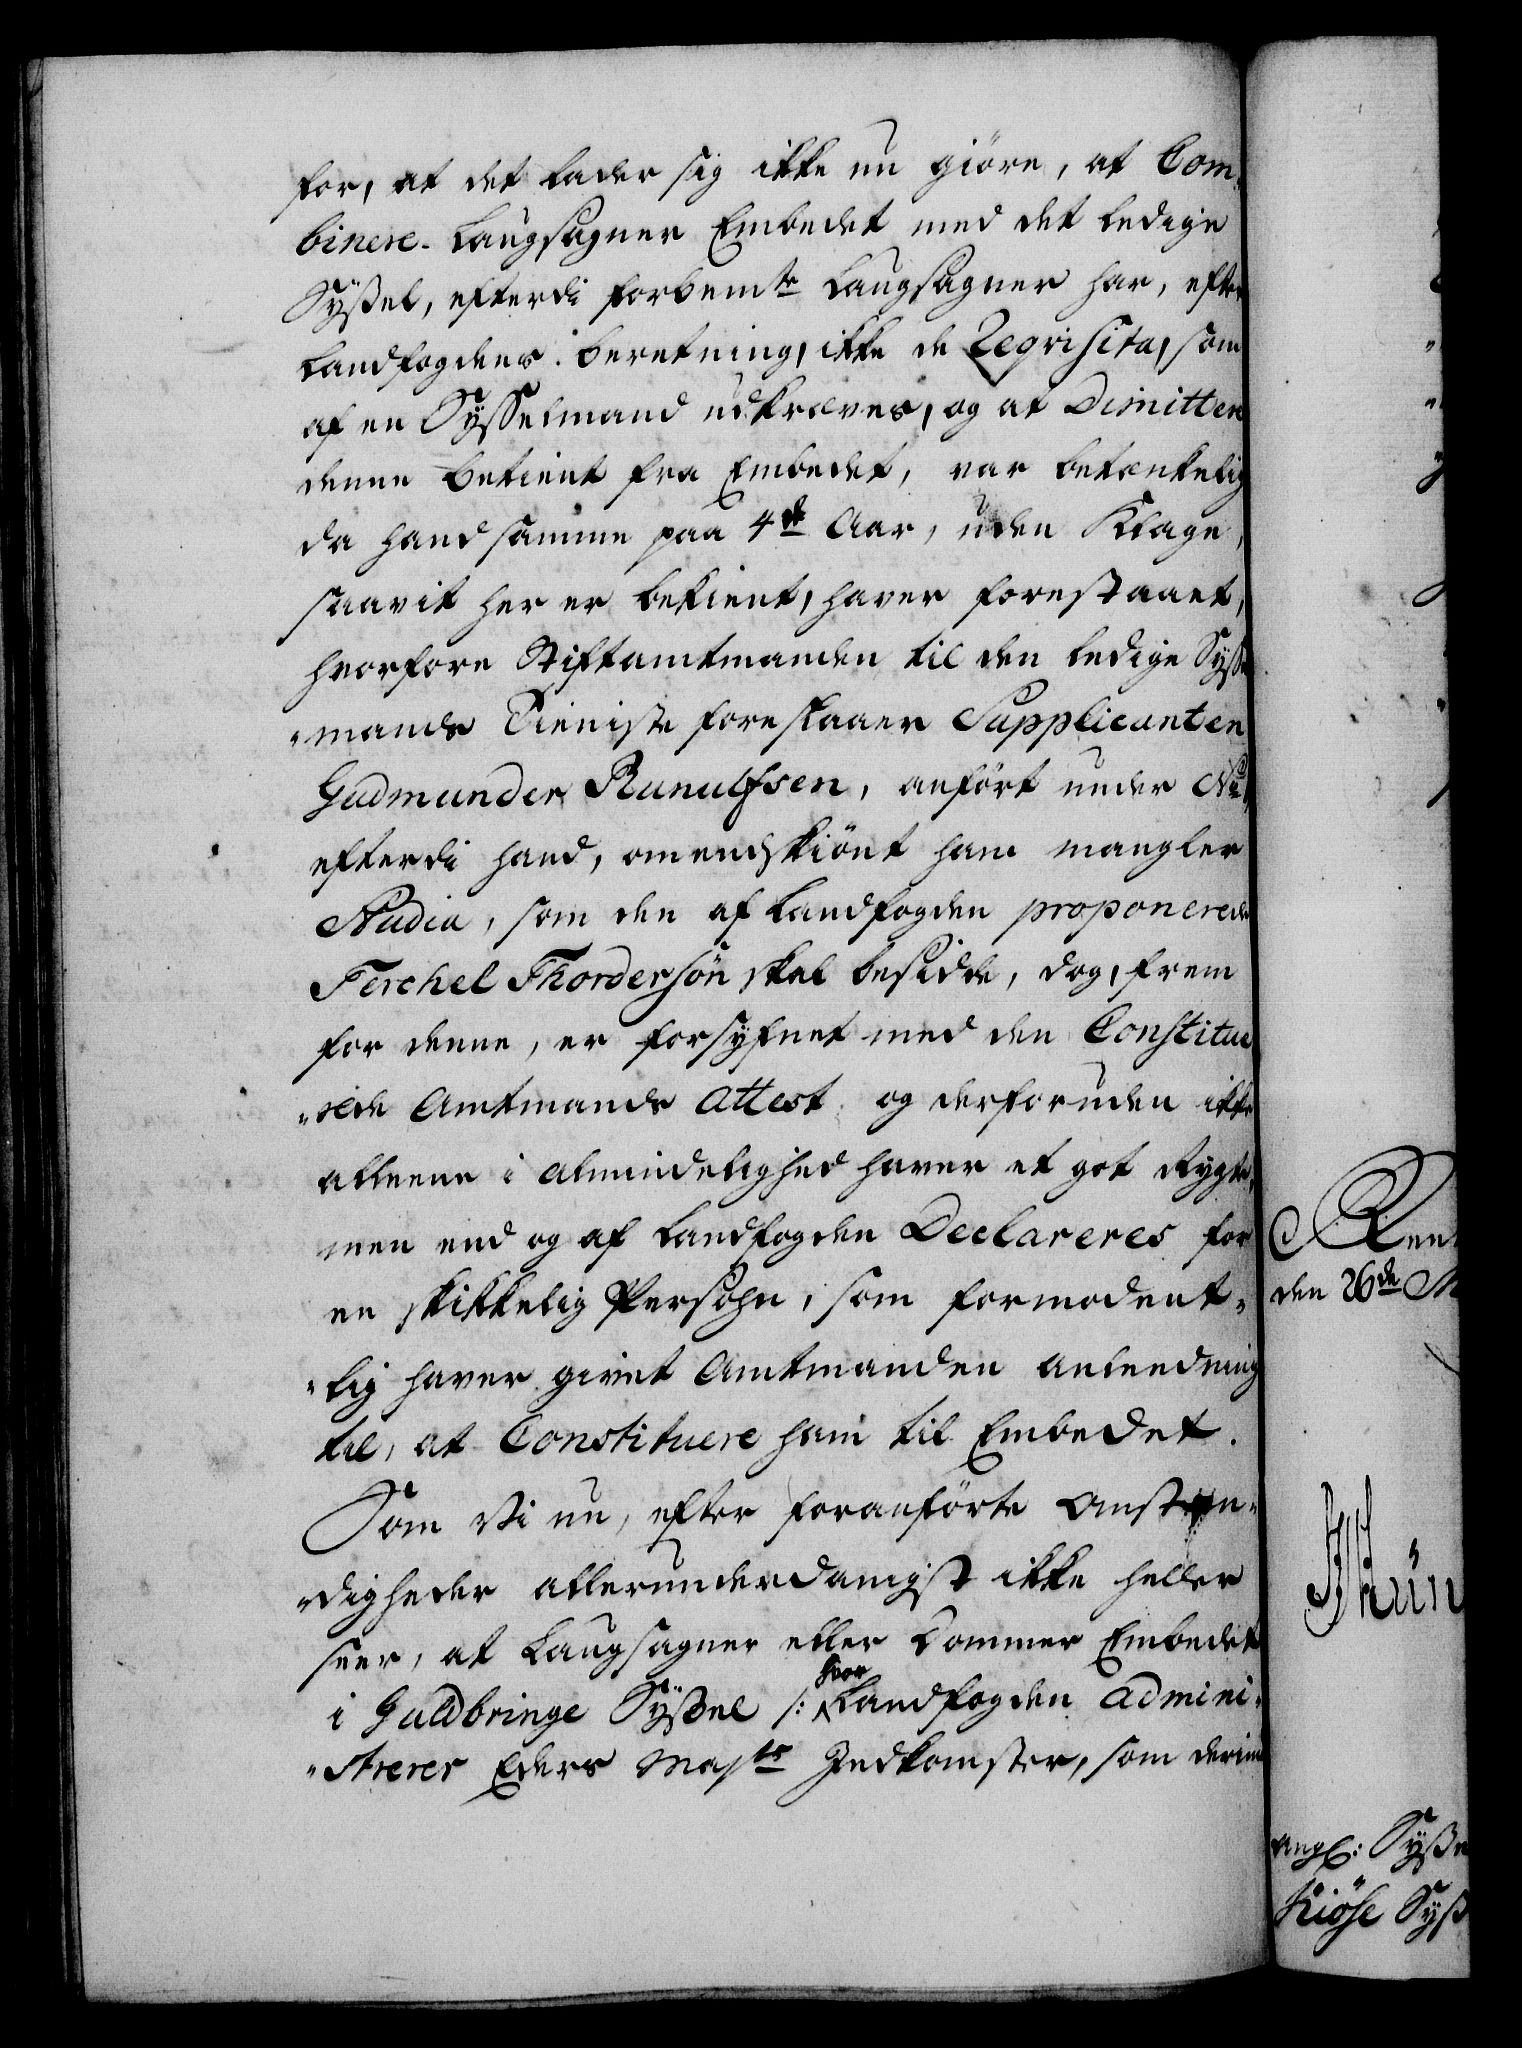 for, at det lader sig ikke nu giöre, at Com-
binere Laugsagner Embedet med det ledige
Sÿßel, efterdi forbemte Laugsagner har, efter
Landfogdens beretning, ikke de Reqvisita, som
af en Sÿsselmand udkræves, og at Dimittere
denne betient fra Embedet, var betænkelig
da hand samme paa 4de Aar, uden Klage,
saavit her er bekient, haver forestaaet,
hvorfore Stiftamtmanden til den ledige Sÿße
-mands Tieniste foreslaaer Supplicanten
Gudmunder Runulfsen, anfört under No
efterdi hand, omendskiönt ham mangler
Studia, som den af Landfogden proponerede
Terchel Thordersön skal besidde, dog, frem
for denne, er forsÿfnet med den Constitue
-rede Amtmands Attest og desforuden ikke
alleene i almindelighed haver et got Rygte,
men end og af Landfogden Declareres for
en skikkelig Persohn, som formodent-
-lig haver givet Amtmanden anleedning
til, at Constituere ham til Embedet.
Som Vi nu, efter foranförte Omstæn-
-digheder allerunderdanigst ikke heller
seer, at Laugsagner eller Dommer Embedet
i Guldbringe Sÿßel /: hvor Landfogden Admini-
-strerer Eders Maÿts Indkomster, som derimod
Rent
den 26de M
angl: Sÿße
Kiöse Sÿß